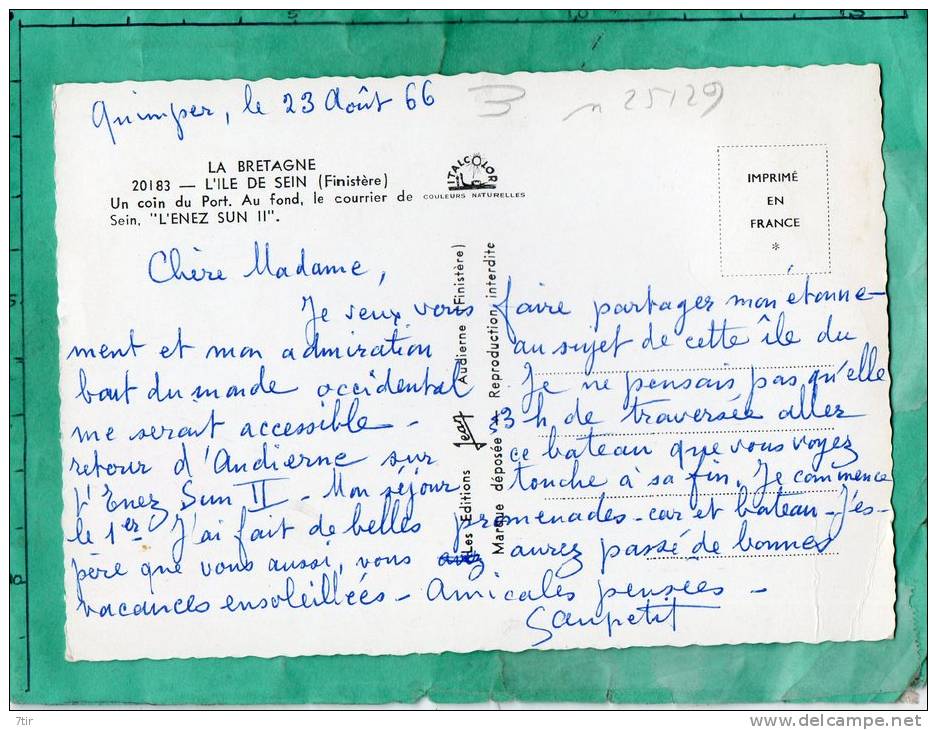 Quimper, le 23 Août 66
25129
LA BRETAGNE
20183 — L'ILE DE SEIN (Finistère)
Un coin du Port. Au fond, le courrier de
Sein, "L'ENEZ SUN II".
ITALCOLOR
COULEURS NATURELLES
IMPRIMÉ
EN
FRANCE
*
Les Editions Jean Audierne (Finistère)
Marque déposée Reproduction interdite
Chère Madame,
Je veux vous faire partager mon étonne-
ment et mon admiration au sujet de cette île du
bout du monde occidental. Je ne pensais pas qu'elle
me serait accessible - 3 h de traversée aller
retour d'Audierne sur ce bateau que vous voyez
l'Enez Sun II - Mon séjour touche à sa fin. Je commence
le 1er J'ai fait de belles promenades - car et bateau - J'es-
père que vous aussi, vous aurez passé de bonnes
vacances ensoleillées - Amicales pensées -
7tir
www.delcampe.net